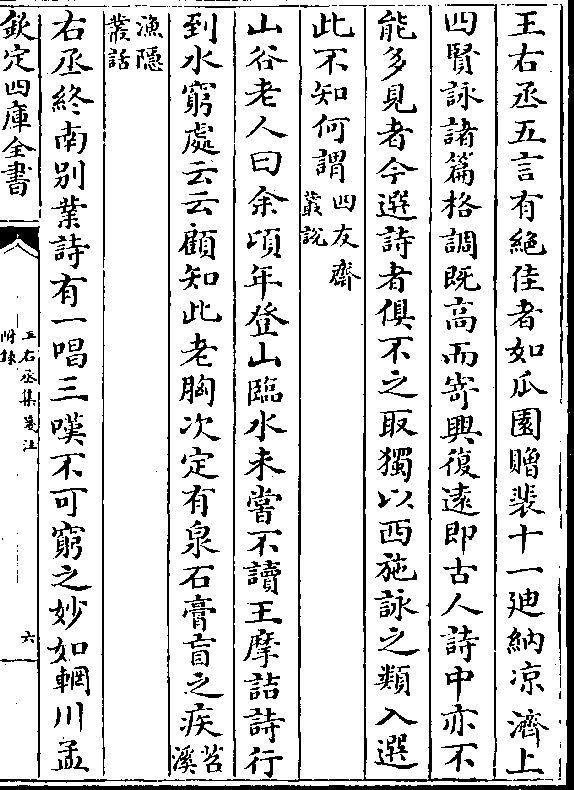 王右丞五言有絶佳者如瓜園贈裴十一廸納凉濟上
四賢詠諸篇格調既高而寄興復遠即古人詩中亦不
能多見者今選詩者俱不之取獨以西施詠之類入選
此不知何謂四友齋叢說
山谷老人曰余頃年登山臨水未嘗不讀王摩詰詩行
到水窮處云云顧知此老胸次定有泉石膏肓之疾苕溪
漁隱叢話
右丞終南别業詩有一唱三嘆不可窮之妙如輞川孟
欽定四庫全書
王右丞集箋注
附錄
六